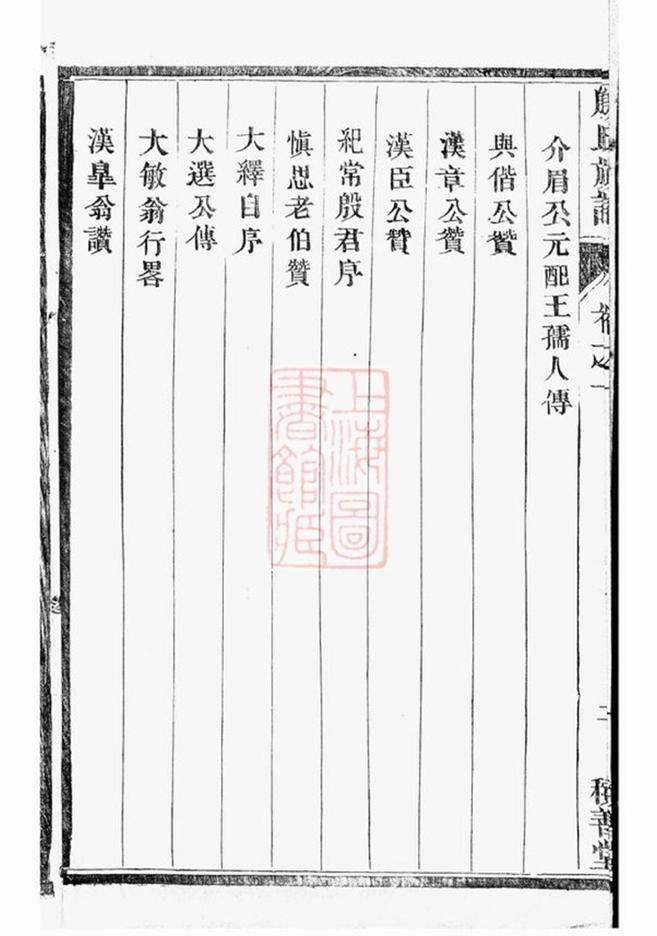 介眉公元配王孺人傳
與偕公贊
漢章公贊
漢臣公贊
紀常殷君序
慎思老伯贊
大釋自序
大選公傳
大敏翁行畧
漢臯翁讚
卷之一
二
積善堂
上海圖書館藏